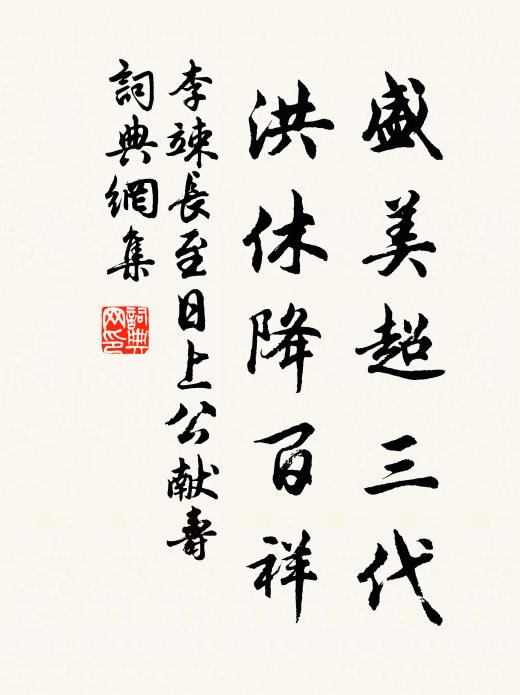 盛美超三代
洪休降百祥
李竦長至日上公献壽
詞典網集
詞典网印